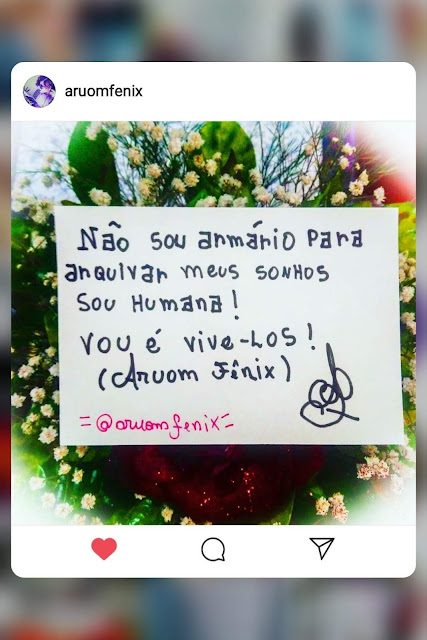 aruomfenix
Não sou armário para
arquivar meus sonhos
Sou Humana!
Vou é vive-Los!
(Aruom Fênix)
=@aruomfenix=